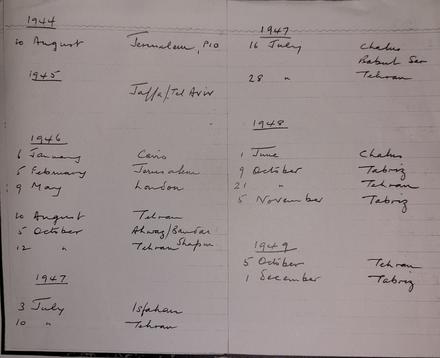 1944
10 August Jerusalem, PIO
1945
Jaffa/Tel Aviv
1946
6 January Cairo
5 February Jerusalem
9 May London
10 August Tehran
5 October Ahwaz/Bandar
Shapur
12 " Tehran
1947
3 July Isfahan
10 " Tehran
1947
16 July Chalus
Babul Sar
28 " Tehran
1948
1 June Chalus
9 October Tabriz
21 " Tehran
5 November Tabriz
1949
5 October Tehran
1 December Tabriz